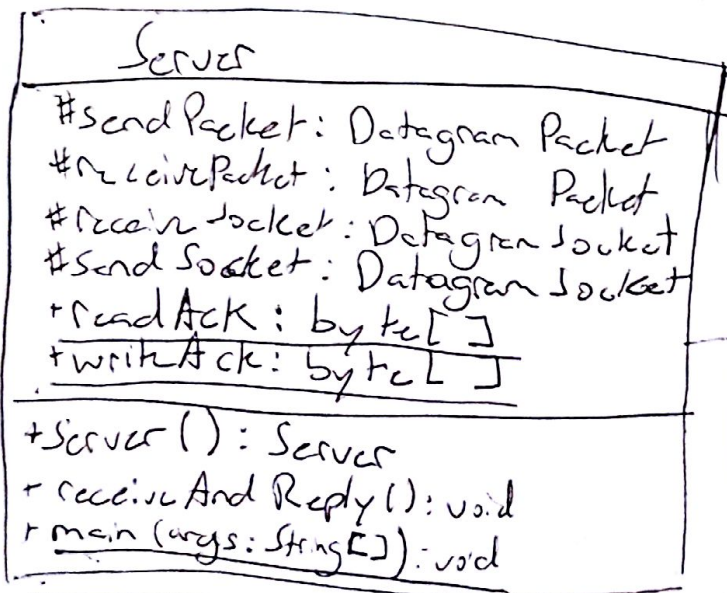 Server
#sendPacket: Datagram Packet
#receivePacket: Datagram Packet
#receiveSocket: Datagram Socket
#sendSocket: Datagram Socket
+readAck: byte[]
+writeAck: byte[]
+Server(): Server
+receiveAndReply(): void
+main(args: String[]): void